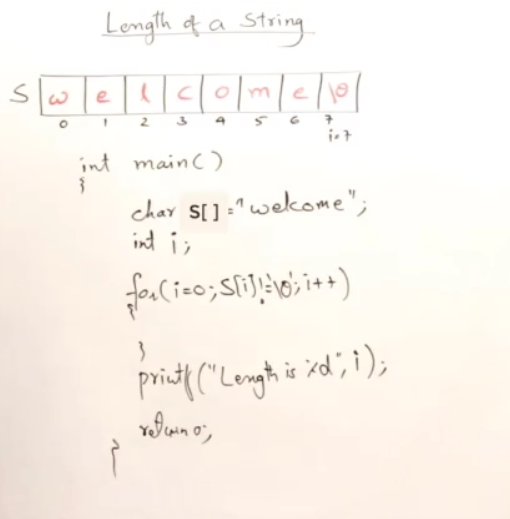 Length of a String
S w e l c o m e \0
0 1 2 3 4 5 6 7
i=7
int main()
{
char S[] = "welcome";
int i;
for(i=0; S[i]!='\0'; i++)
{
}
printf("Length is %d", i);
return 0;
}